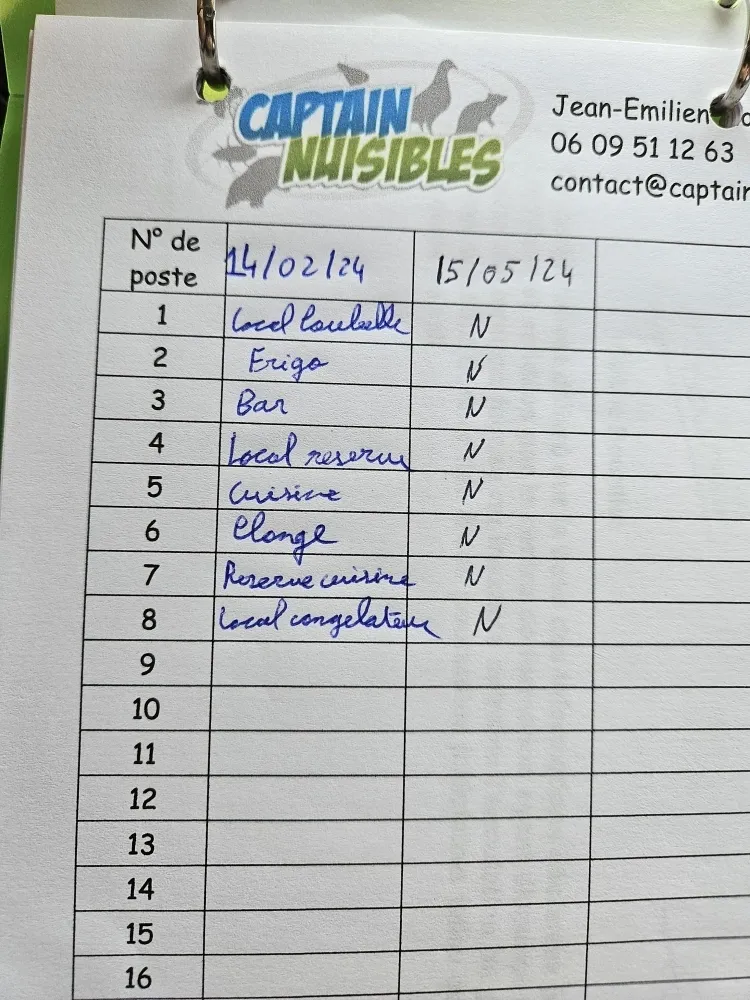 CAPTAIN
NUISIBLES
Jean-Emilien
06 09 51 12 63
contact@captain
N° de poste 14/02/24 15/05/24
1 Local N
2 Frigo N
3 Bar N
4 Local reserve N
5 Cuisine N
6 Plonge N
7 Reserve cuisine N
8 Local congelateur N
9
10
11
12
13
14
15
16